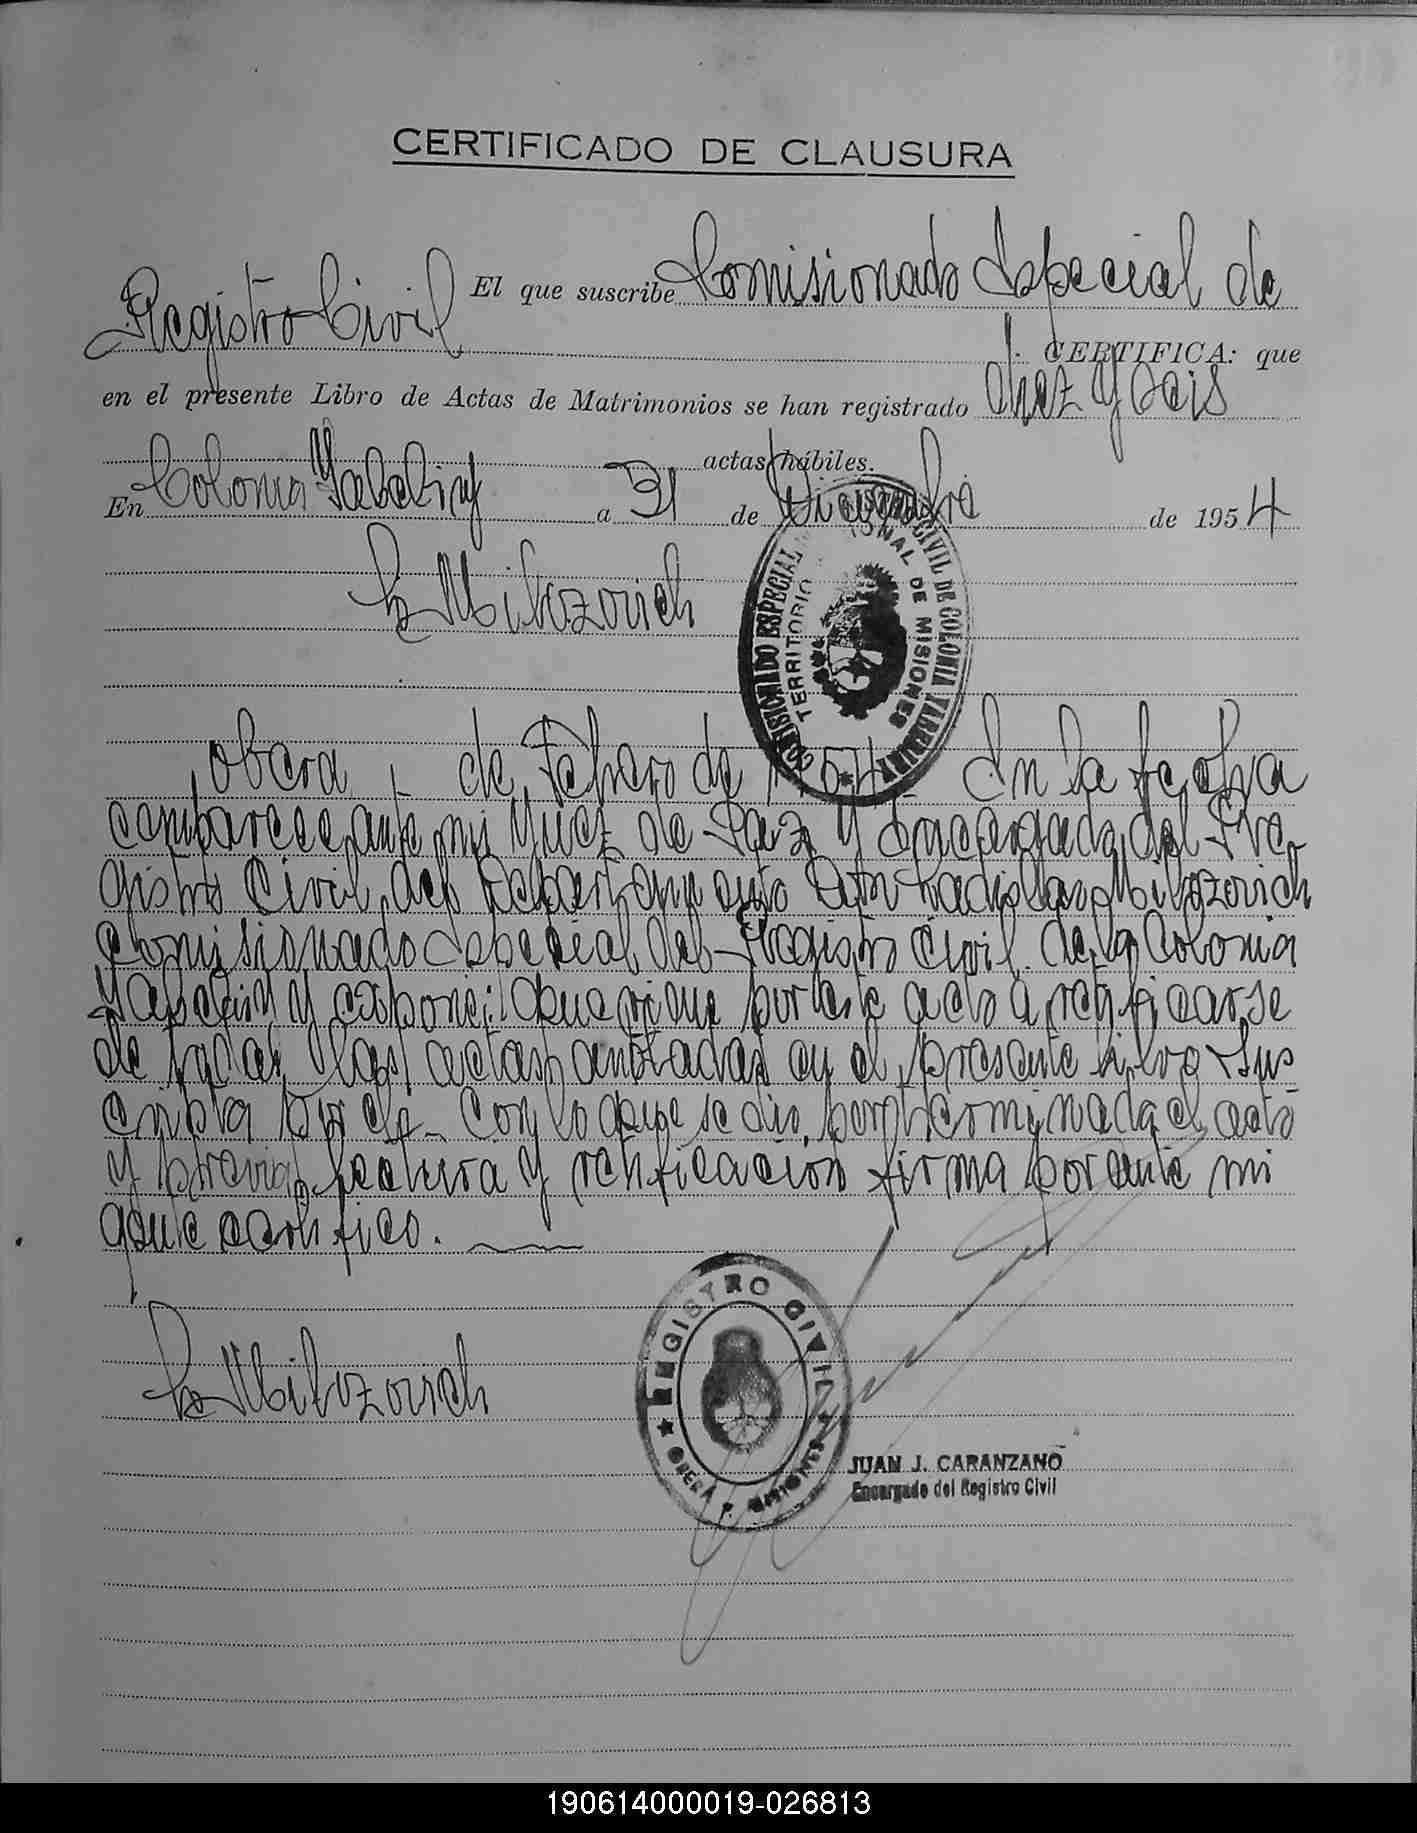 CERTIFICADO DE CLAUSURA
El que suscribe Comisionado Especial de
Registro Civil CERTIFICA: que
en el presente Libro de Actas de Matrimonios se han registrado diez y seis
actas hábiles.
En Colonia Yabebiry a 31 de Diciembre de 1954
Mikozovich
COMISIONADO ESPECIAL REGISTRO CIVIL DE COLONIA YABEBIRY
TERRITORIO NACIONAL DE MISIONES
Obera, de Febrero de En la fecha
comparece ante mi Juez de Paz y Encargado del Re
gistro Civil del Departamento Don Ladislao Mikozovich
Comisionado Especial del Registro Civil de la Colonia
Yabebiry y expone: que viene por este acto a ratificarse
de todas las actas anotadas en el presente libro Sus
cripta por el. Con lo que se dio por terminada el acto
y previa lectura y ratificacion firma por ante mi
que certifico.
Mikozovich
REGISTRO CIVIL
OBERA P. MISIONES
JUAN J. CARANZANO
Encargado del Registro Civil
190614000019-026813